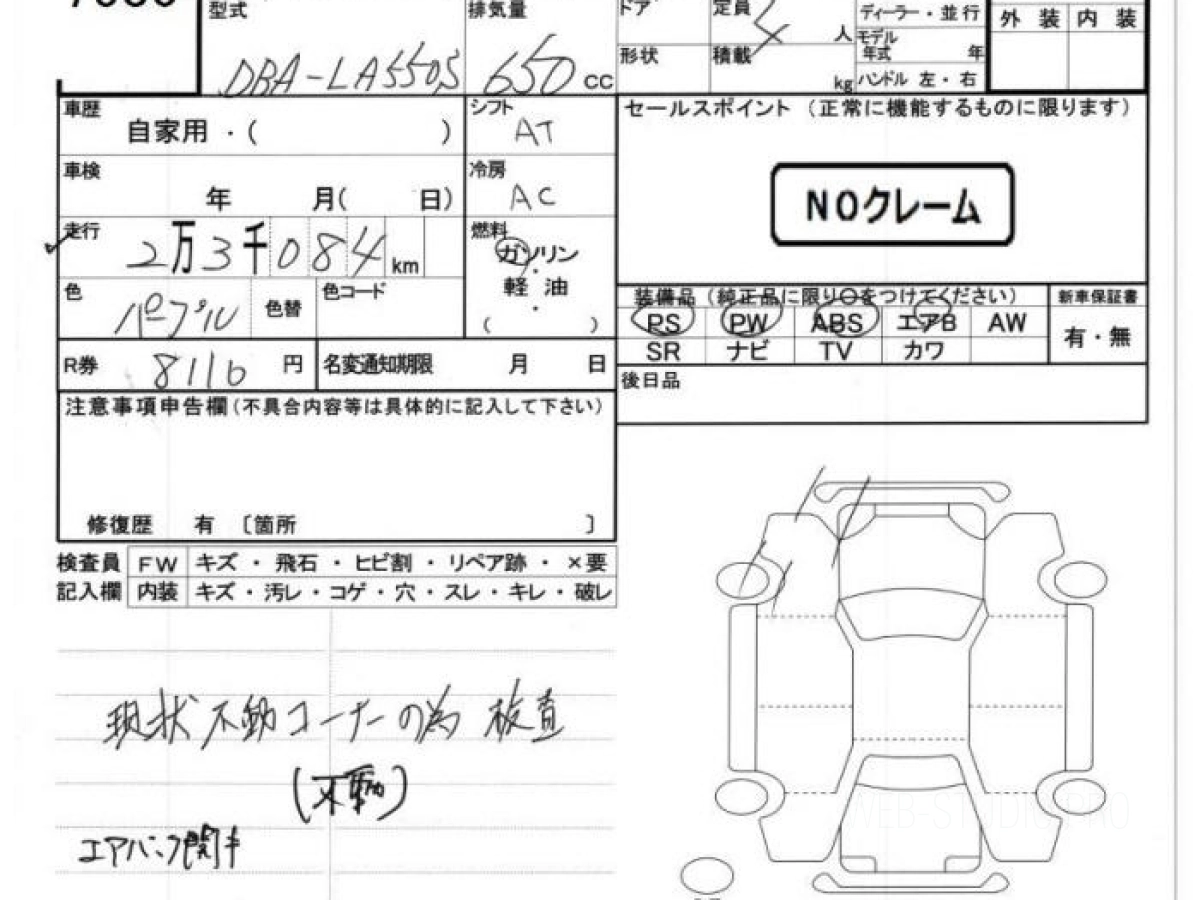 型式 DBA-LA550S
排気量 650 cc
ドア
定員 4 人
形状
積載 kg
ディーラー・並行
モデル年式 年
ハンドル 左・右
外装 内装
車歴 自家用・( )
シフト AT
車検 年 月( 日)
冷房 AC
走行 2万3千084 km
燃料 ガソリン・軽油・( )
色 パープル 色替 色コード
R券 8116 円 名変通知期限 月 日
注意事項申告欄(不具合内容等は具体的に記入して下さい)
修復歴 有 〔箇所 〕
セールスポイント (正常に機能するものに限ります)
NOクレーム
装備品 (純正品に限り○をつけてください) 新車保証書
PS PW ABS エアB AW 有・無
SR ナビ TV カワ
後日品
検査員 FW キズ・飛石・ヒビ割・リペア跡・×要
記入欄 内装 キズ・汚レ・コゲ・穴・スレ・キレ・破レ
現状不動コーナーの為 検査
(不動)
エアバック開キ
WEB-STUDIO.PRO